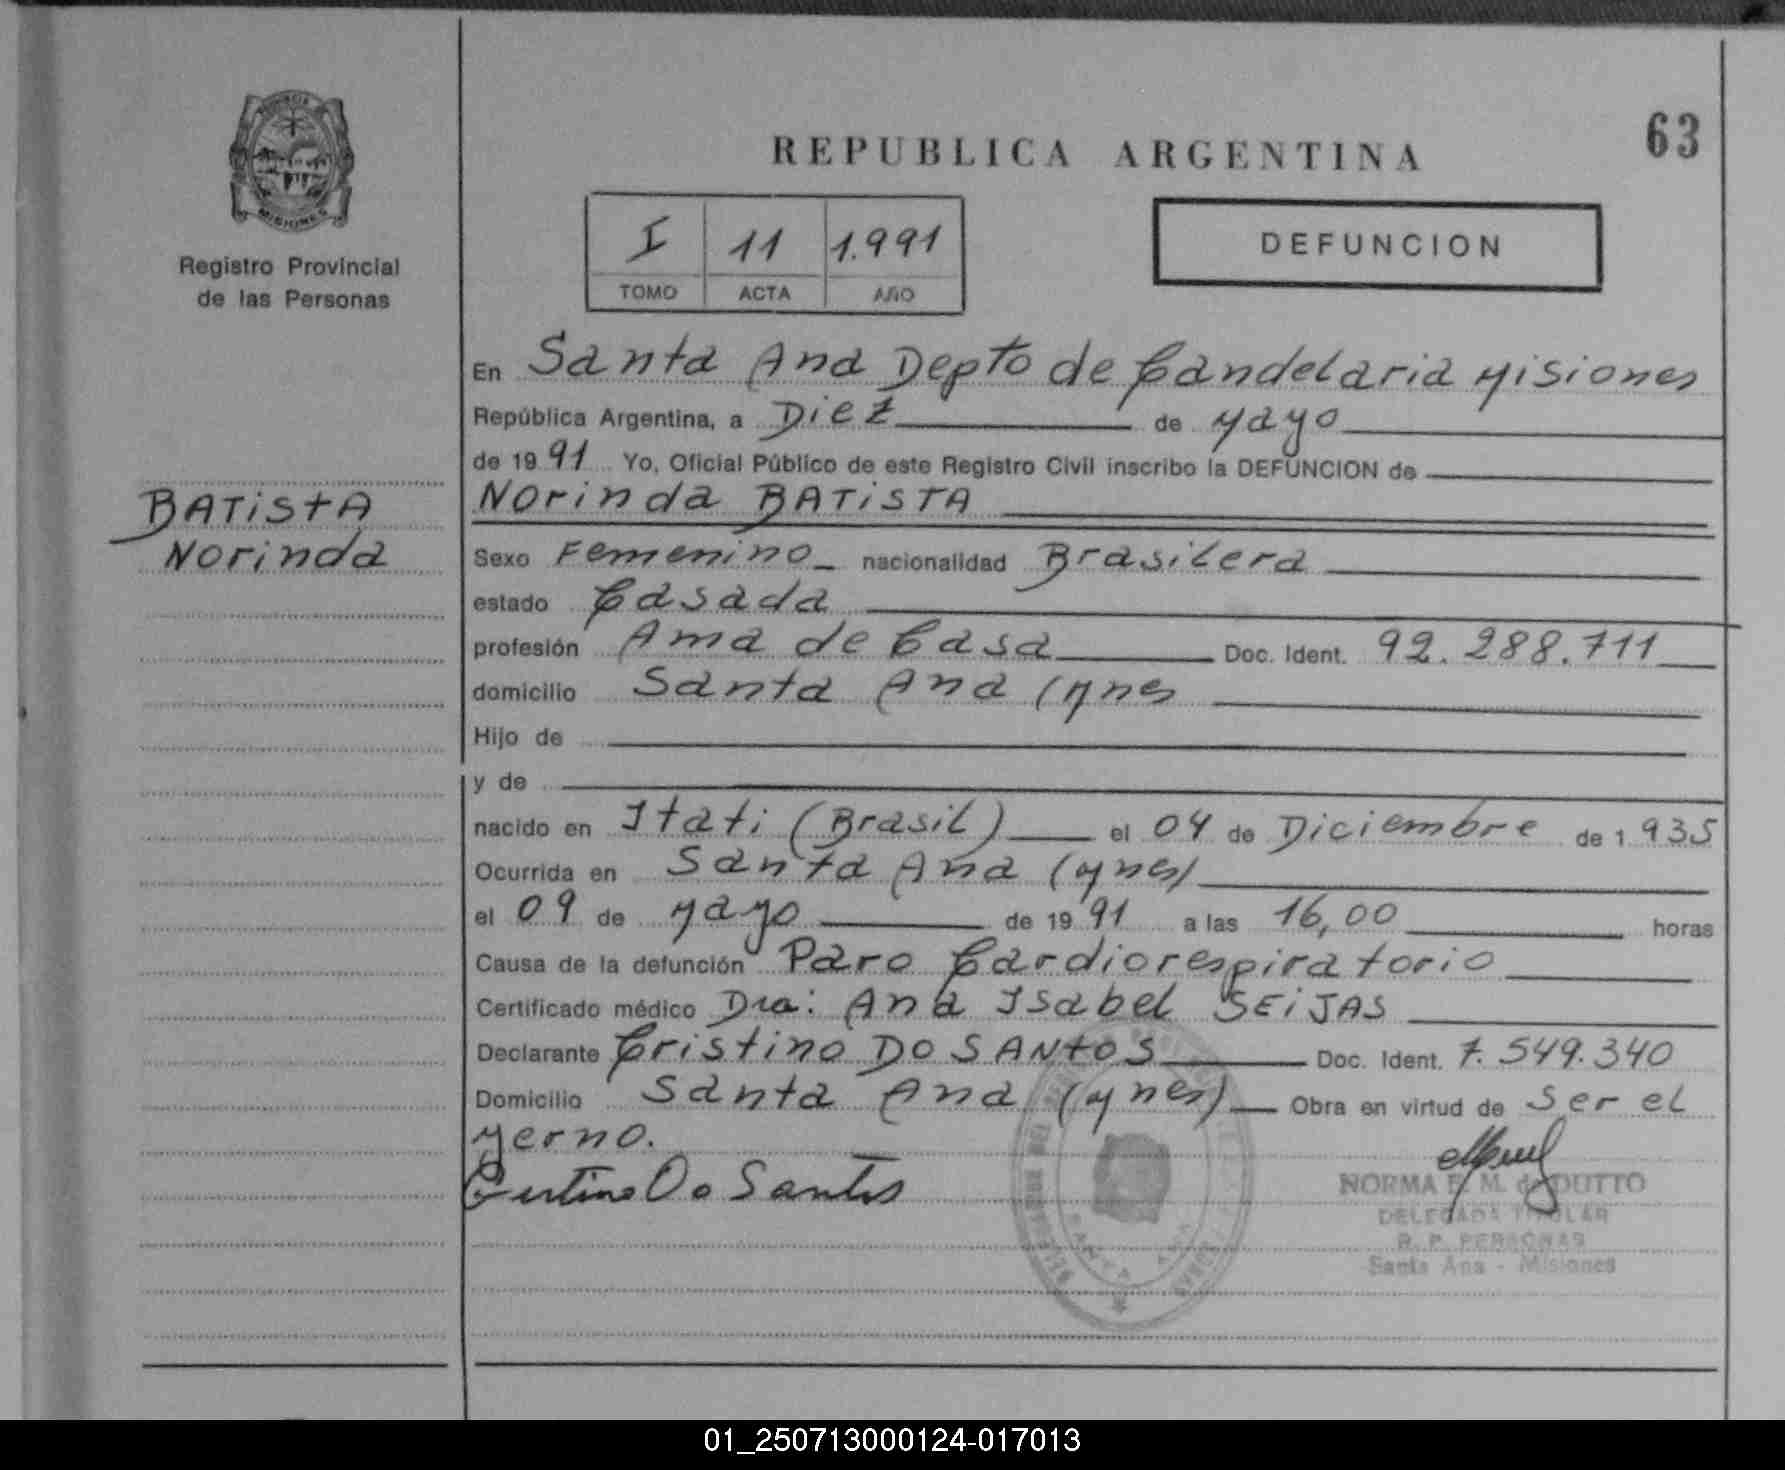 PROVINCIA
MISIONES
Registro Provincial
de las Personas
BATISTA
Norinda
REPUBLICA ARGENTINA
63
I 11 1.991
TOMO ACTA AÑO
DEFUNCION
En Santa Ana Depto de Candelaria Misiones
República Argentina, a Diez de Mayo
de 1991 Yo, Oficial Público de este Registro Civil inscribo la DEFUNCION de
Norinda BATISTA
Sexo Femenino nacionalidad Brasilera
estado Casada
profesión Ama de Casa Doc. Ident. 92.288.711
domicilio Santa Ana (Mnes
Hijo de
y de
nacido en Itati (Brasil) el 04 de Diciembre de 1.935
Ocurrida en Santa Ana (Mnes)
el 09 de Mayo de 1991 a las 16,00 horas
Causa de la defunción Paro Cardiorespiratorio
Certificado médico Dra: Ana Isabel SEIJAS
Declarante Cristino DO SANTOS Doc. Ident. 7.549.340
Domicilio Santa Ana (Mnes) Obra en virtud de Ser el
yerno.
Cristino Do Santos
NORMA E. M. de DUTTO
DELEGADA TITULAR
R. P. PERSONAS
Santa Ana - Misiones
SANTA ANA
01_250713000124-017013